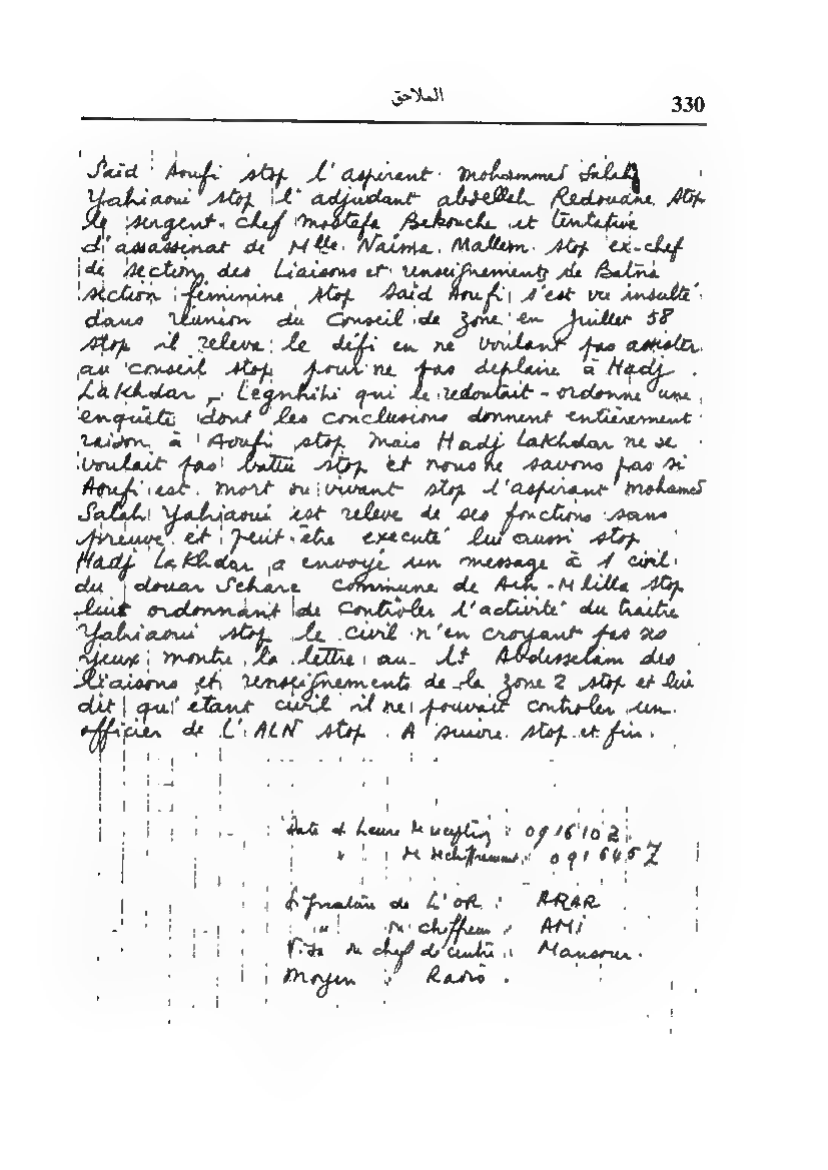 الملاحق
330
Said Aoufi stop l'aspirant Mohammed Salah
Yahiaoui stop l'adjudant abdellah Redouane Stop
le sergent-chef Mostefa Bekouche et tentative
d'assassinat de Mlle. Naima. Mallem. stop ex-chef
de section des Liaisons et renseignements de Batna
section féminine stop Said Aoufi s'est vu insulté
dans réunion du Conseil de zone en juillet 58
stop il releve le défi en ne voulant pas assister
au conseil stop pour ne pas deplaire à Hadj
Lakhdar, qui le redoutait - ordonne une
enquête dont les conclusions donnent entièrement
raison à Aoufi stop mais Hadj Lakhdar ne se
voulait pas battu stop et nous ne savons pas si
Aoufi est mort ou vivant stop l'aspirant mohamed
Salah Yahiaoui est releve de ses fonctions sans
preuve et peut-être executé lui aussi stop
Hadj Lakhdar a envoyé un message à 1 civil
du douar Schare commune de Ain-Mlilla stop
ordonnant de Contrôler l'activité du traitre
Yahiaoui stop le civil n'en croyant pas ses
yeux montre la lettre au Lt Abdesselam des
liaisons et renseignements de la zone 2 stop et lui
dit qu'étant civil il ne pouvait controler un
officier de L'ALN stop. A suivre stop et fin.
Date et heure de reception : 091610Z
" de dechiffrement : 091645Z
Signature de L'OR : ARAR
" du chiffreur : AMI
Visa du chef de centre : Mansour.
Moyen : Radio.